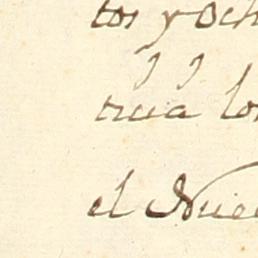 tos y och
tria lo
el Nue